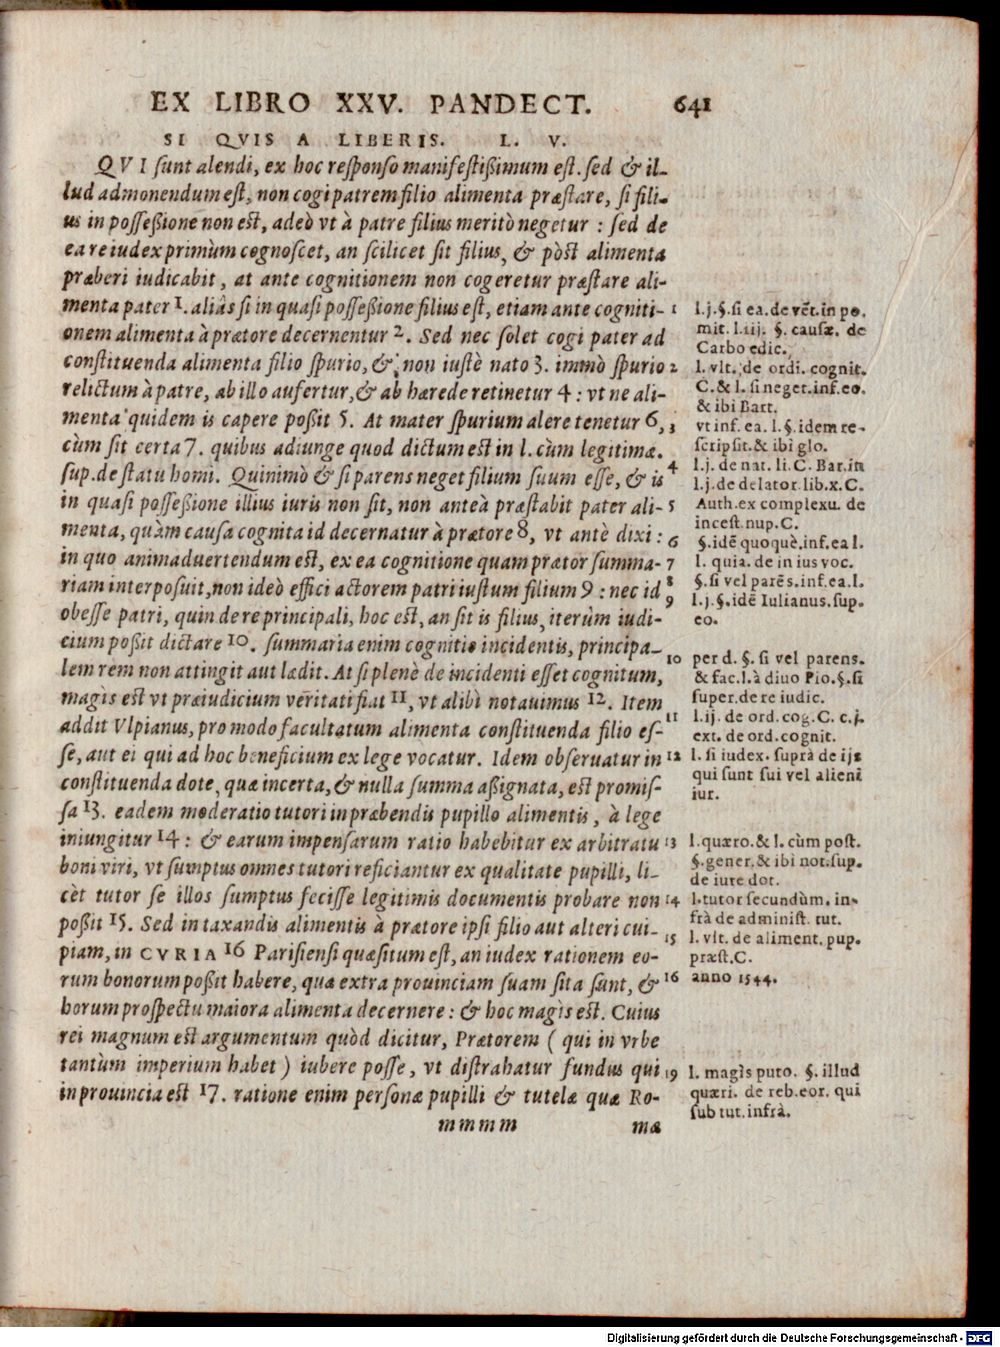 EX LIBRO XXV. PANDECT. 641
SI QVIS A LIBERIS. L. V.
QVI sunt alendi, ex hoc responso manifestißimum est. sed & il-
lud admonendum est, non cogi patrem filio alimenta præstare, si fili-
us in possessione non est, adeò vt à patre filius meritò negetur : sed de
ea re iudex primùm cognoscet, an scilicet sit filius, & pòst alimenta
præberi iudicabit, at ante cognitionem non cogeretur præstare ali-
menta pater 1. aliâs si in quasi possessione filius est, etiam ante cogniti-
onem alimenta à prætore decernentur 2. Sed nec solet cogi pater ad
constituenda alimenta filio spurio, & non iustè nato 3. immò spurio
relictum à patre, ab illo aufertur, & ab hærede retinetur 4 : vt ne ali-
menta quidem is capere poßit 5. At mater spurium alere tenetur 6,
cùm sit certa 7. quibus adiunge quod dictum est in l. cùm legitimæ.
sup. de statu homi. Quinimò & si parens neget filium suum esse, & is
in quasi possessione illius iuris non sit, non anteà præstabit pater ali-
menta, quàm causa cognita id decernatur à prætore 8, vt antè dixi :
in quo animaduertendum est, ex ea cognitione quam prætor summa-
riam interposuit, non ideò effici actorem patri iustum filium 9 : nec id
obesse patri, quin de re principali, hoc est, an sit is filius, iterùm iudi-
cium poßit dictare 10. summaria enim cognitio incidentis, principa-
lem rem non attingit aut lædit. At si plenè de incidenti esset cognitum,
magis est vt præiudicium veritati fiat 11, vt alibì notauimus 12. Item
addit Vlpianus, pro modo facultatum alimenta constituenda filio es-
se, aut ei qui ad hoc beneficium ex lege vocatur. Idem obseruatur in
constituenda dote, quæ incerta, & nulla summa aßignata, est promis-
sa 13. eadem moderatio tutori in præbendis pupillo alimentis, à lege
iniungitur 14 : & earum impensarum ratio habebitur ex arbitratu
boni viri, vt sumptus omnes tutori reficiantur ex qualitate pupilli, li-
cèt tutor se illos sumptus fecisse legitimis documentis probare non
poßit 15. Sed in taxandis alimentis à prætore ipsi filio aut alteri cui-
piam, in CVRIA 16 Parisiensi quæsitum est, an iudex rationem eo-
rum bonorum poßit habere, quæ extra prouinciam suam sita sunt, &
horum prospectu maiora alimenta decernere : & hoc magis est. Cuius
rei magnum est argumentum quòd dicitur, Prætorem ( qui in vrbe
tantùm imperium habet ) iubere posse, vt distrahatur fundus qui
in prouincia est 17. ratione enim personæ pupilli & tutelæ quæ Ro-
mmmm mæ
1 l.j.§.si ea.de vẽt.in po.
mit. l.iij. §. causæ. de
Carbo edic.
2 l. vlt. de ordi. cognit.
C. & l. si neget.inf.eo.
& ibi Bart.
3 vt inf. ea. l. §. idem re-
scripsit. & ibi glo.
4 l.j. de nat. li. C. Bar. in
l.j. de delator. lib.x. C.
5 Auth. ex complexu. de
incest. nup. C.
6 §. idẽ quoquè. inf. ea l.
7 l. quia. de in ius voc.
8 §. si vel parẽs. inf. ea. l.
9 l.j.§.idẽ Iulianus. sup.
eo.
10 per d. §. si vel parens.
& fac. l. à diuo Pio. §. si
super. de re iudic.
11 l.ij. de ord. cog. C. c.j.
ext. de ord. cognit.
12 l. si iudex. suprà de ijs
qui sunt sui vel alieni
iur.
13 l. quæro. & l. cùm post.
§. gener. & ibi not. sup.
de iure dot.
14 l. tutor secundùm. in-
frà de administ. tut.
15 l. vlt. de aliment. pup.
præst. C.
16 anno 1544.
19 l. magis puto. §. illud
quæri. de reb. eor. qui
sub tut. infrà.
Digitalisierung gefördert durch die Deutsche Forschungsgemeinschaft - DFG